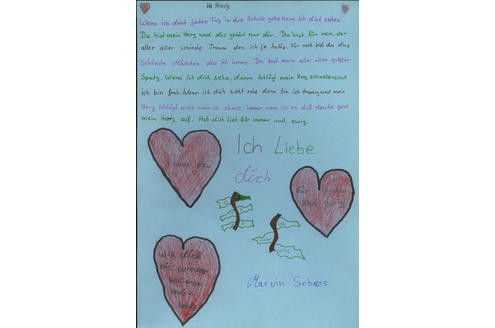 Hi Spatz
Wenn ich dich jeden Tag in die Schule gehe kann ich dich sehen
Du bist mein Herz und das gehört nur dir. Du bist für mich, der
aller aller schönste Traum den ich je hatte. Für mich bist du das
Schönste Mädchen das ich kenne. Du bist mein aller aller größter
Spatz. Wenn ich dich sehe, dann schlägt mein Herz schneller und
Ich bin froh. Wenn ich dich nicht sehe dann bin ich traurig und mein
Herz schlägt nicht mehr so schnell. Immer wenn ich an dich denke geht
mein Herz auf. Hab dich lieb für immer und ewig.
Ich Liebe
dich
I love you
Für immer
und ewig
Will dich
nie wieder
verlieren
mein
Marvin Sebers